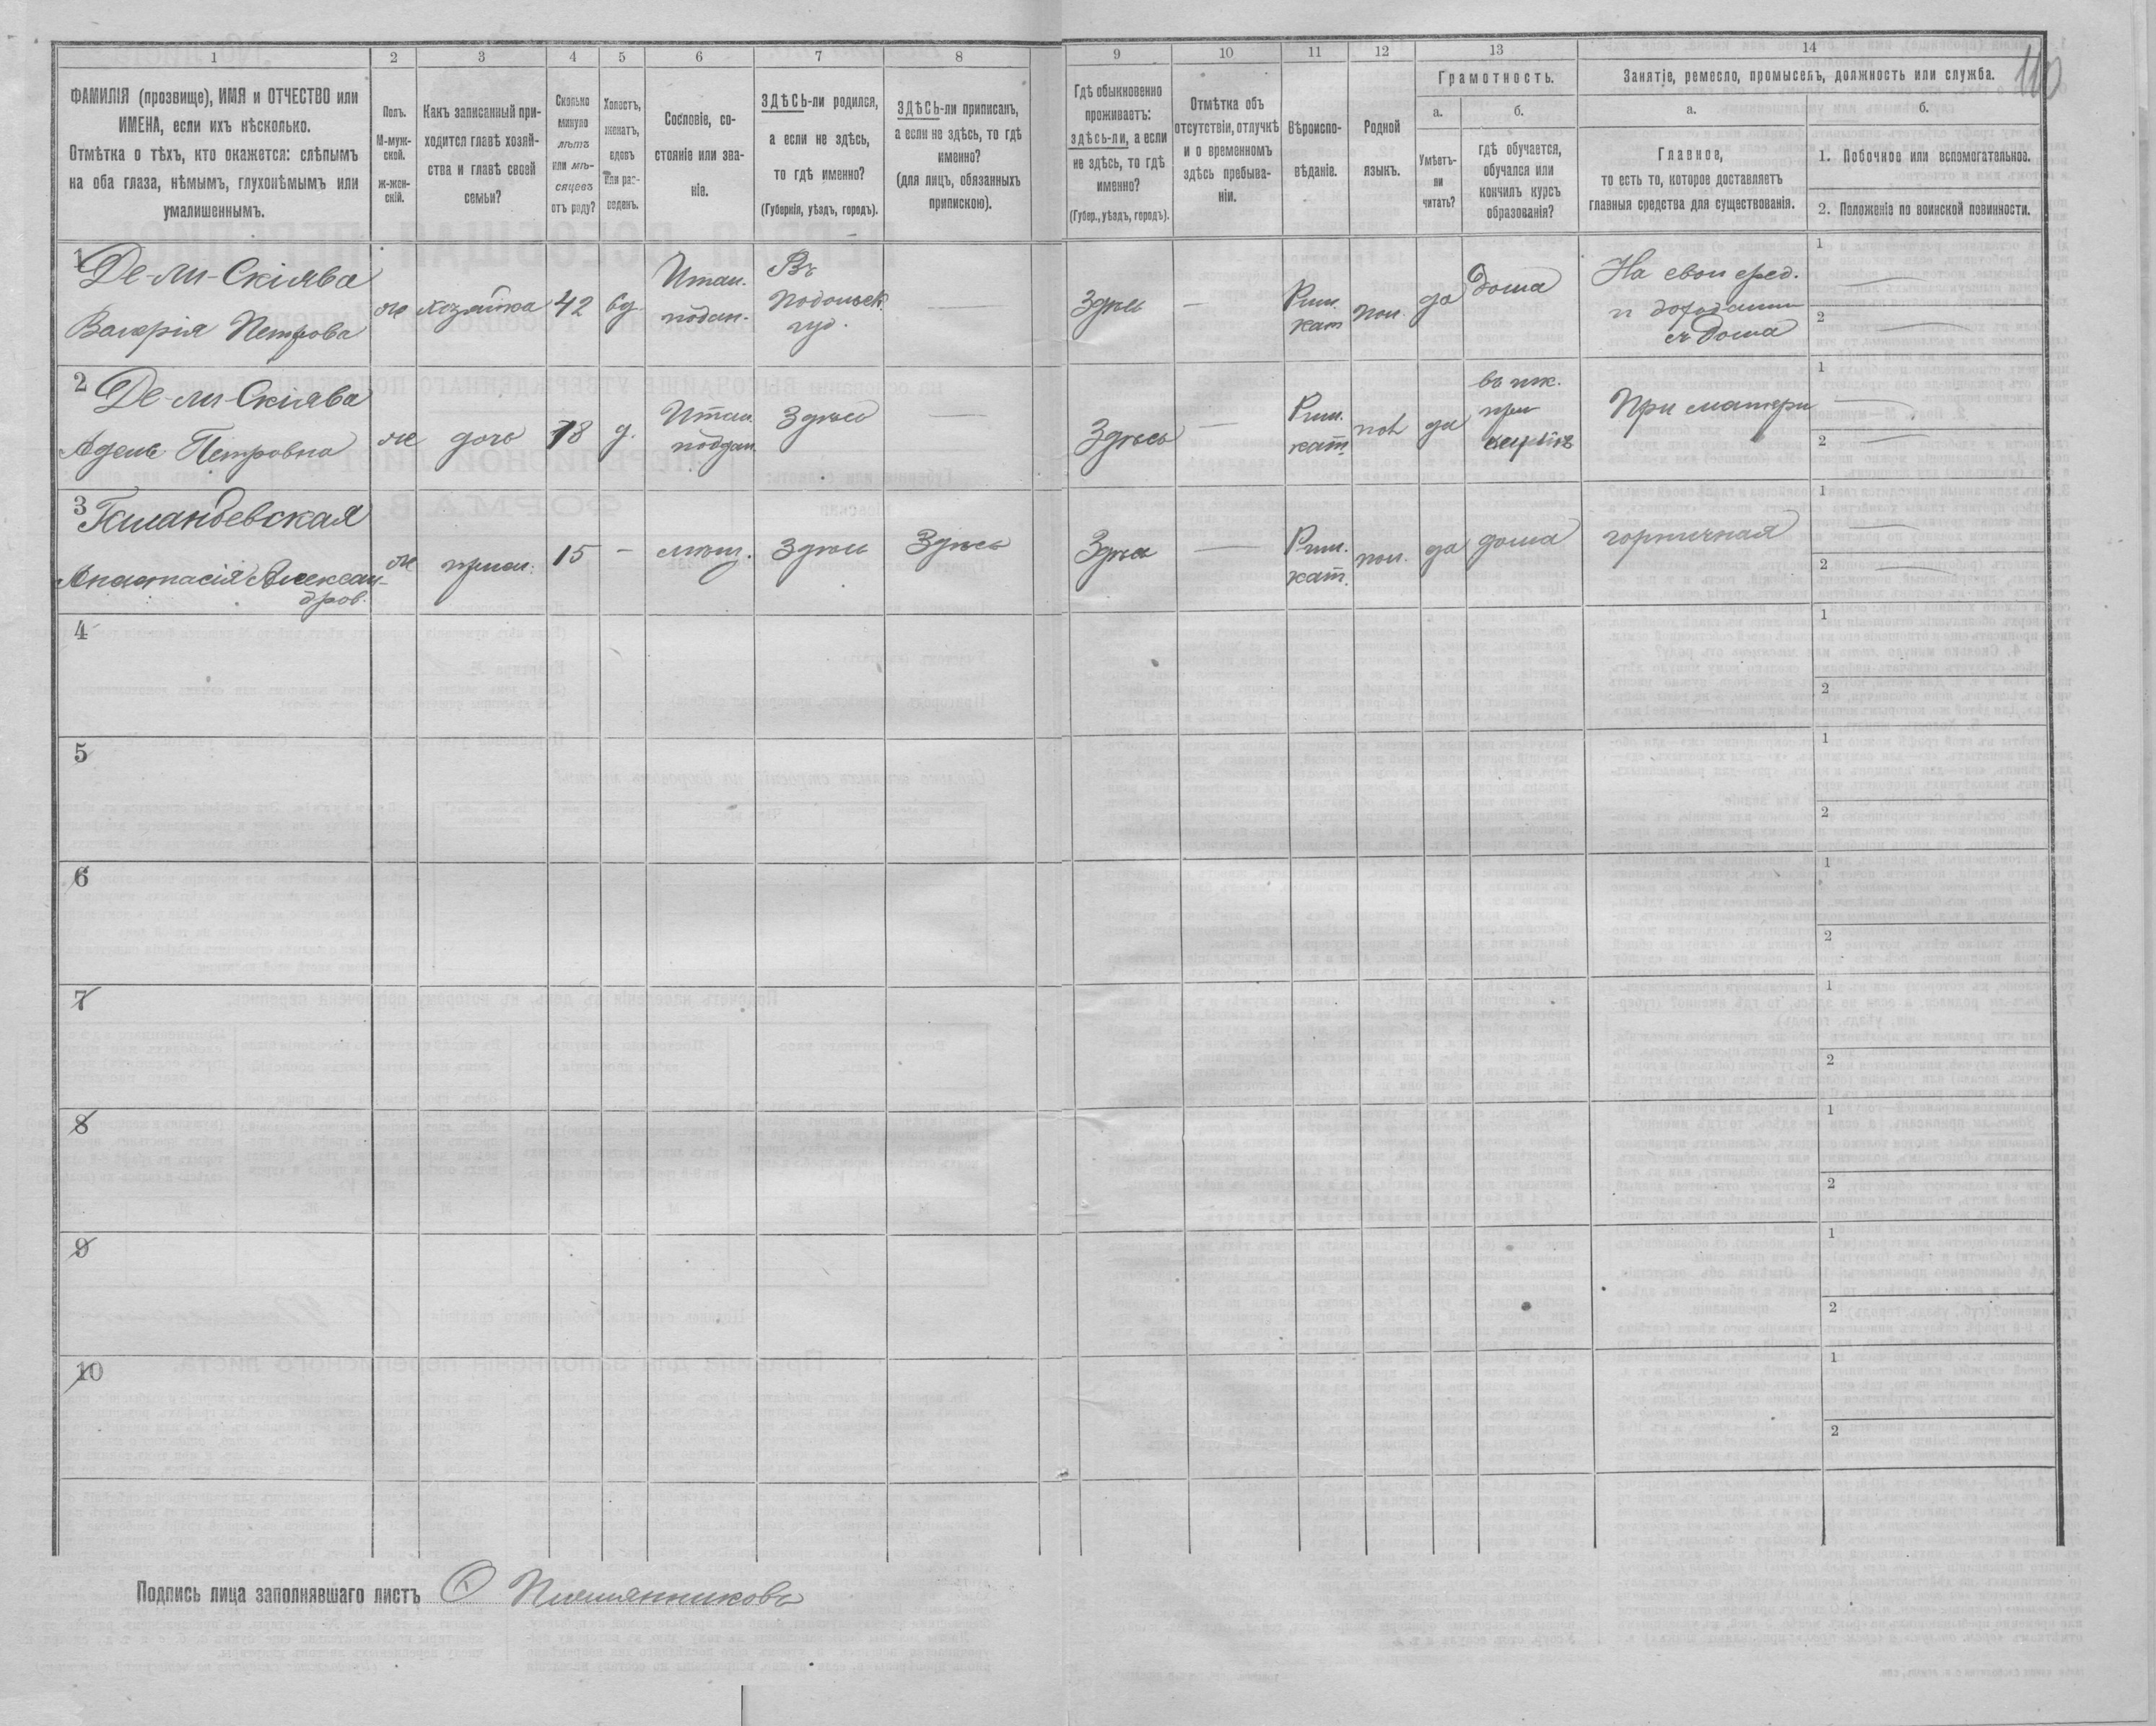 1 2 3 4 5 6 7 8 9 10 11 12 13 14
ФАМИЛІЯ (прозвище), ИМЯ и ОТЧЕСТВО или
ИМЕНА, если ихъ нѣсколько.
Отмѣтка о тѣхъ, кто окажется: слѣпымъ
на оба глаза, нѣмымъ, глухонѣмымъ или
умалишеннымъ.
Полъ.
М-муж-
ской.
Ж-жен-
скій.
Какъ записанный при-
ходится главѣ хозяй-
ства и главѣ своей
семьи?
Сколько
минуло
лѣтъ
или мѣ-
сяцевъ
отъ роду?
Холостъ,
женатъ,
вдовъ
или раз-
веденъ.
Сословіе, со-
стояніе или зва-
ніе.
ЗДѢСЬ-ли родился,
а если не здѣсь,
то гдѣ именно?
(Губернія, уѣздъ, городъ).
ЗДѢСЬ-ли приписанъ,
а если не здѣсь, то гдѣ
именно?
(для лицъ, обязанныхъ
припискою).
Гдѣ обыкновенно
проживаетъ:
здѣсь-ли, а если
не здѣсь, то гдѣ
именно?
(Губер., уѣздъ, городъ).
Отмѣтка объ
отсутствіи, отлучкѣ
и о временномъ
здѣсь пребыва-
ніи.
Вѣроиспо-
вѣданіе.
Родной
языкъ.
Грамотность.
а.
Умѣетъ-
ли
читать?
б.
гдѣ обучается,
обучался или
кончилъ курсъ
образованія?
Занятіе, ремесло, промыселъ, должность или служба.
а.
Главное,
то есть то, которое доставляетъ
главныя средства для существованія.
б.
1. Побочное или вспомогательное.
2. Положеніе по воинской повинности.
1
Де-ли-Скіява
Валерія Петрова
же
хозяйка
42
вд.
Итал.
подан.
Въ
Подольск.
губ.
—
Здѣсь
—
Рим.
кат.
пол.
да
дома
На свои сред.
съ дома
1 —
2 —
2
Де-ли-Скіява
Адель Петровна
же
дочь
18
д.
Итал.
поддан.
Здѣсь
—
Здѣсь
—
Рим.
кат.
пол.
да
При матери
1 —
2 —
3
Анастасія Алексан-
дров.
же
15
—
мѣщ.
Здѣсь
Здѣсь
Здѣсь
—
Рим.
кат.
пол.
да
дома
горничная
1 —
2 —
4
1
2
5
1
2
6
1
2
7
1
2
8
1
2
9
1
2
10
1
2
Подпись лица заполнявшаго листъ